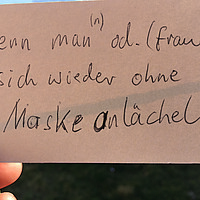 (n)
enn man od. (frau
sich wieder ohne
Maske anlächel